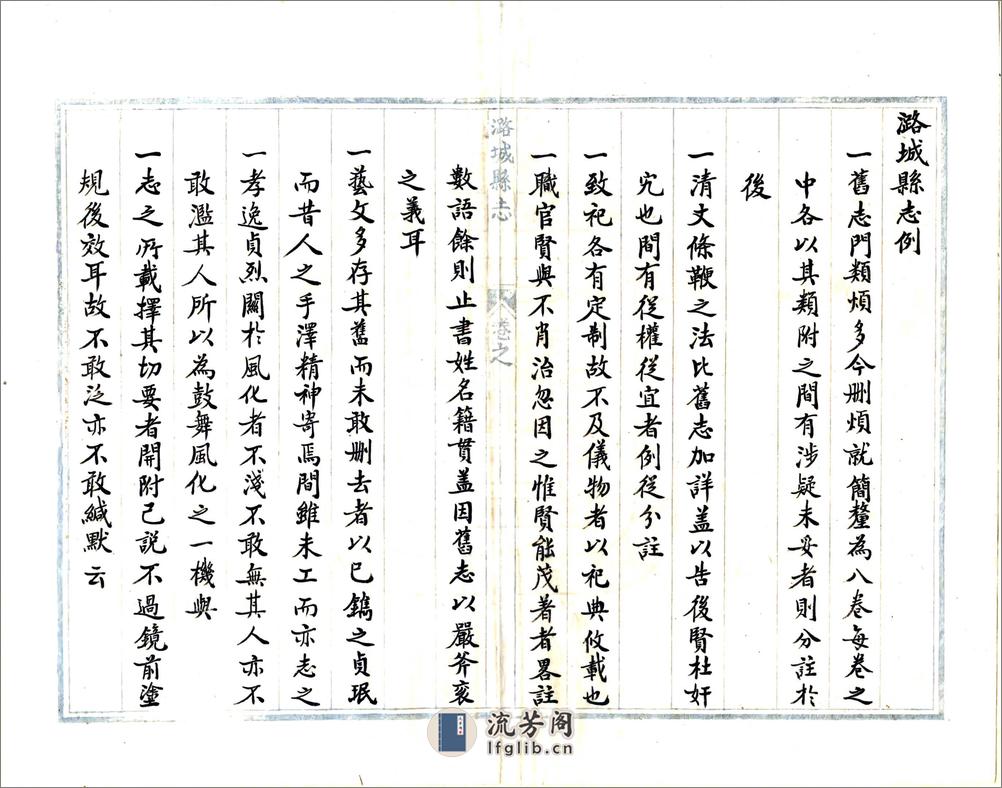 潞城縣志例
一舊志門類煩多今刪煩就簡釐為八卷每卷之
中各以其類附之間有涉疑未妥者則分註於
後
一清丈條鞭之法比舊志加詳盖以告後賢杜奸
宄也間有從權從宜者例從分註
一致祀各有定制故不及儀物者以祀典攸載也
一職官賢與不肖治忽因之惟賢能茂著者畧註
潞城縣志
卷之
數語餘則止書姓名籍貫盖因舊志以嚴斧衮
之義耳
一藝文多存其舊而未敢刪去者以已鐫之貞珉
而昔人之手澤精神寄焉間雖未工而亦志之
一孝逸貞烈關於風化者不淺不敢無其人亦不
敢濫其人所以為鼓舞風化之一機與
一志之所載擇其切要者開附己說不過鏡前塗
規後效耳故不敢泛亦不敢緘默云
流芳阁
lfglib.cn